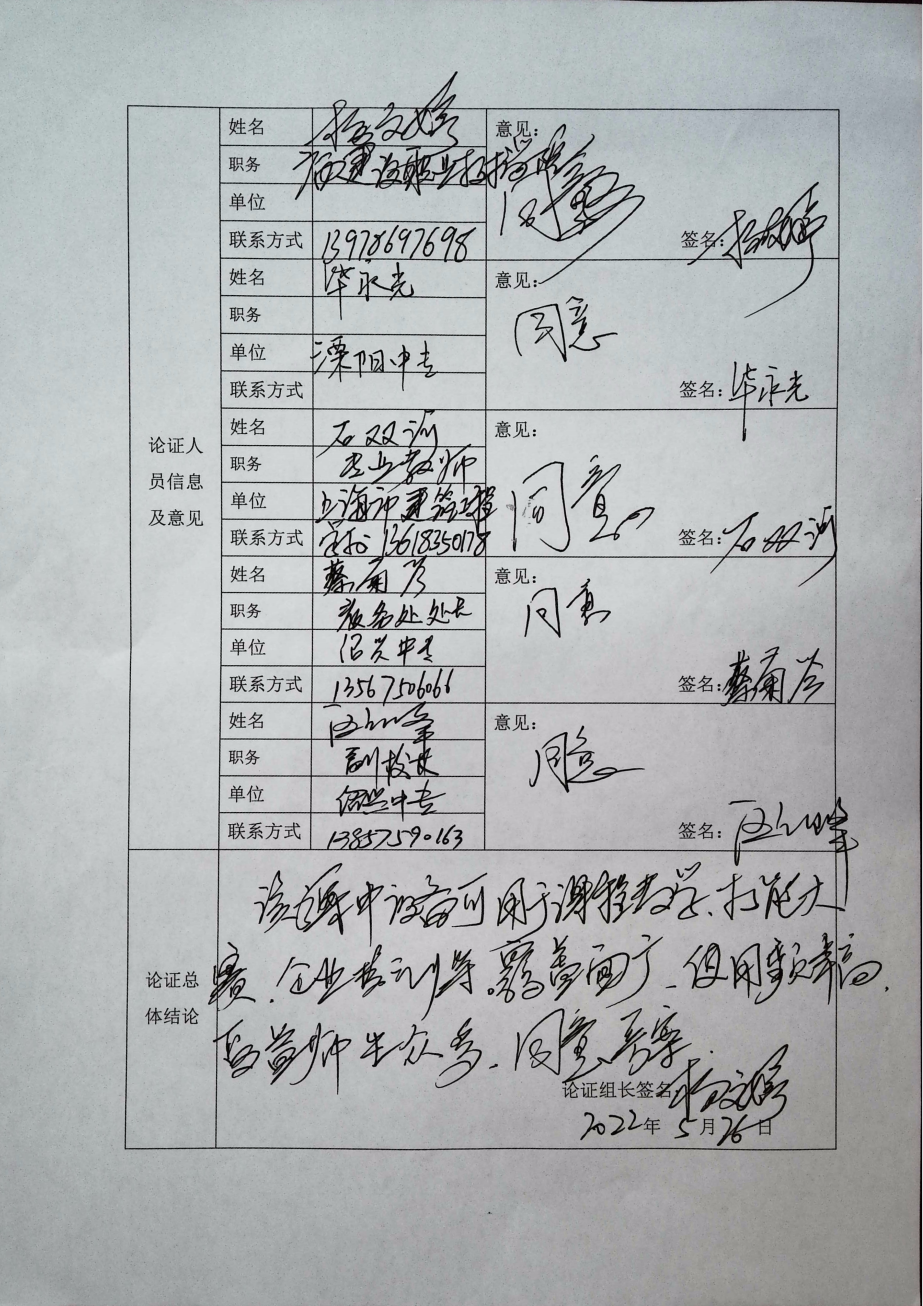 姓名 杨文娟 意见：
职务
单位 同意
联系方式 13978697698 签名：
姓名 毕永光 意见：
职务 同意
单位 溧阳中专
联系方式 签名：毕永光
论证人
员信息
及意见
姓名 石双 意见：
职务 专业教师
单位 上海市建筑工程 同意
联系方式 学校 13618350178 签名：石双
姓名 蔡菊 意见：
职务 教务处处长 同意
单位 绍兴中专
联系方式 13567506066 签名：蔡菊
姓名 意见：
职务 副校长 同意
单位 绍兴中专
联系方式 13857590163 签名：
论证总
体结论
该 中设备可用于课程教学、技能大
赛、企业培训等，覆盖面广、使用频率高，
受益师生众多、同意
论证组长签名
2022年 5月26日